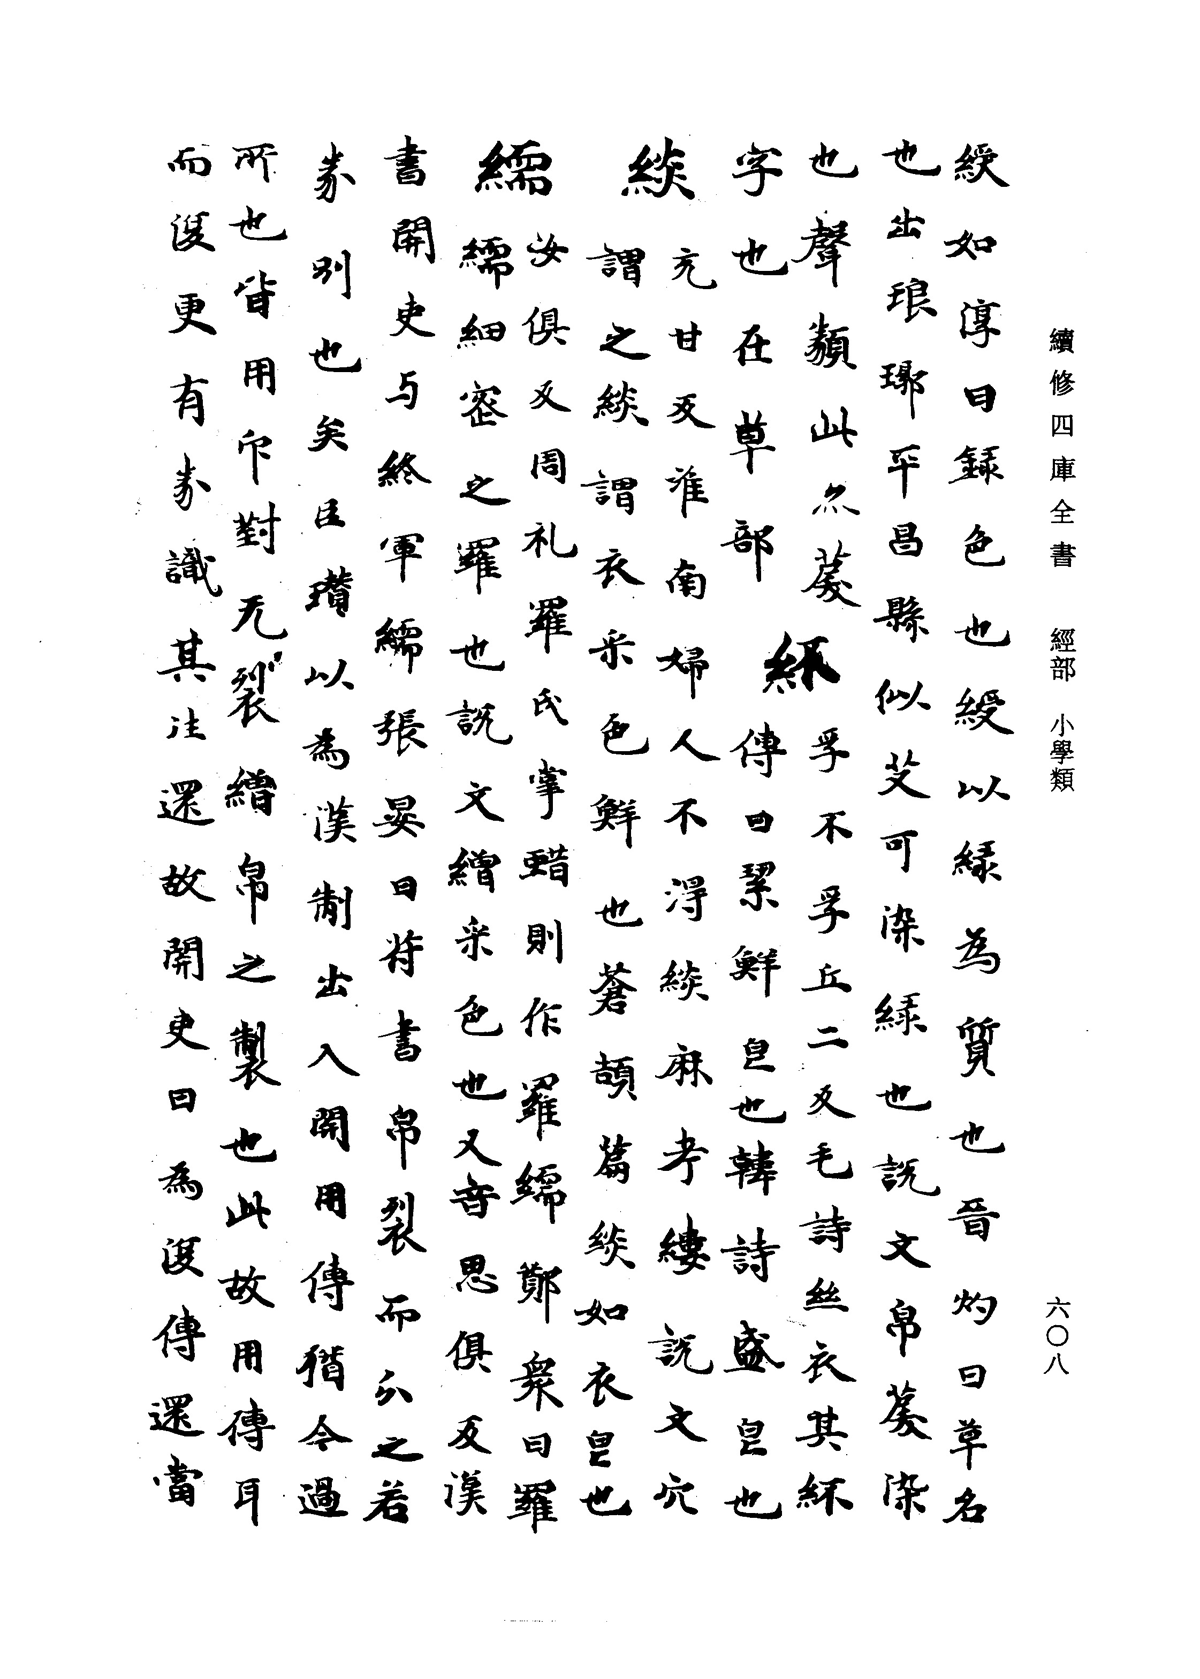 續修四庫全書 經部 小學類
六〇八
綬如淳曰録色也綬以緑為質也晉灼曰草名
也出琅瑘平昌縣似艾可染緑也説文帛䓞染
也聲類此亦䓞 紑孚不孚丘二反毛詩絲衣其紑
字也在草部 傳曰絜鮮皃也韓詩盛皃也
緂充甘反淮南婦人不淂緂麻考縷説文穴
謂之緂謂衣采色鮮也蒼頡篇緂如衣皃也
繻汝俱反周礼羅氏掌蜡則作羅繻鄭衆曰羅
繻細密之羅也説文繒采色也又音思俱反漢
書開吏与終軍繻張晏曰符書帛裂而分之若
券別也矣臣瓚以為漢制出入開用傳猶今過
所也皆用印對无裂繒帛之製也此故用傳耳
而復更有券識其注還故開吏曰為復傳還當